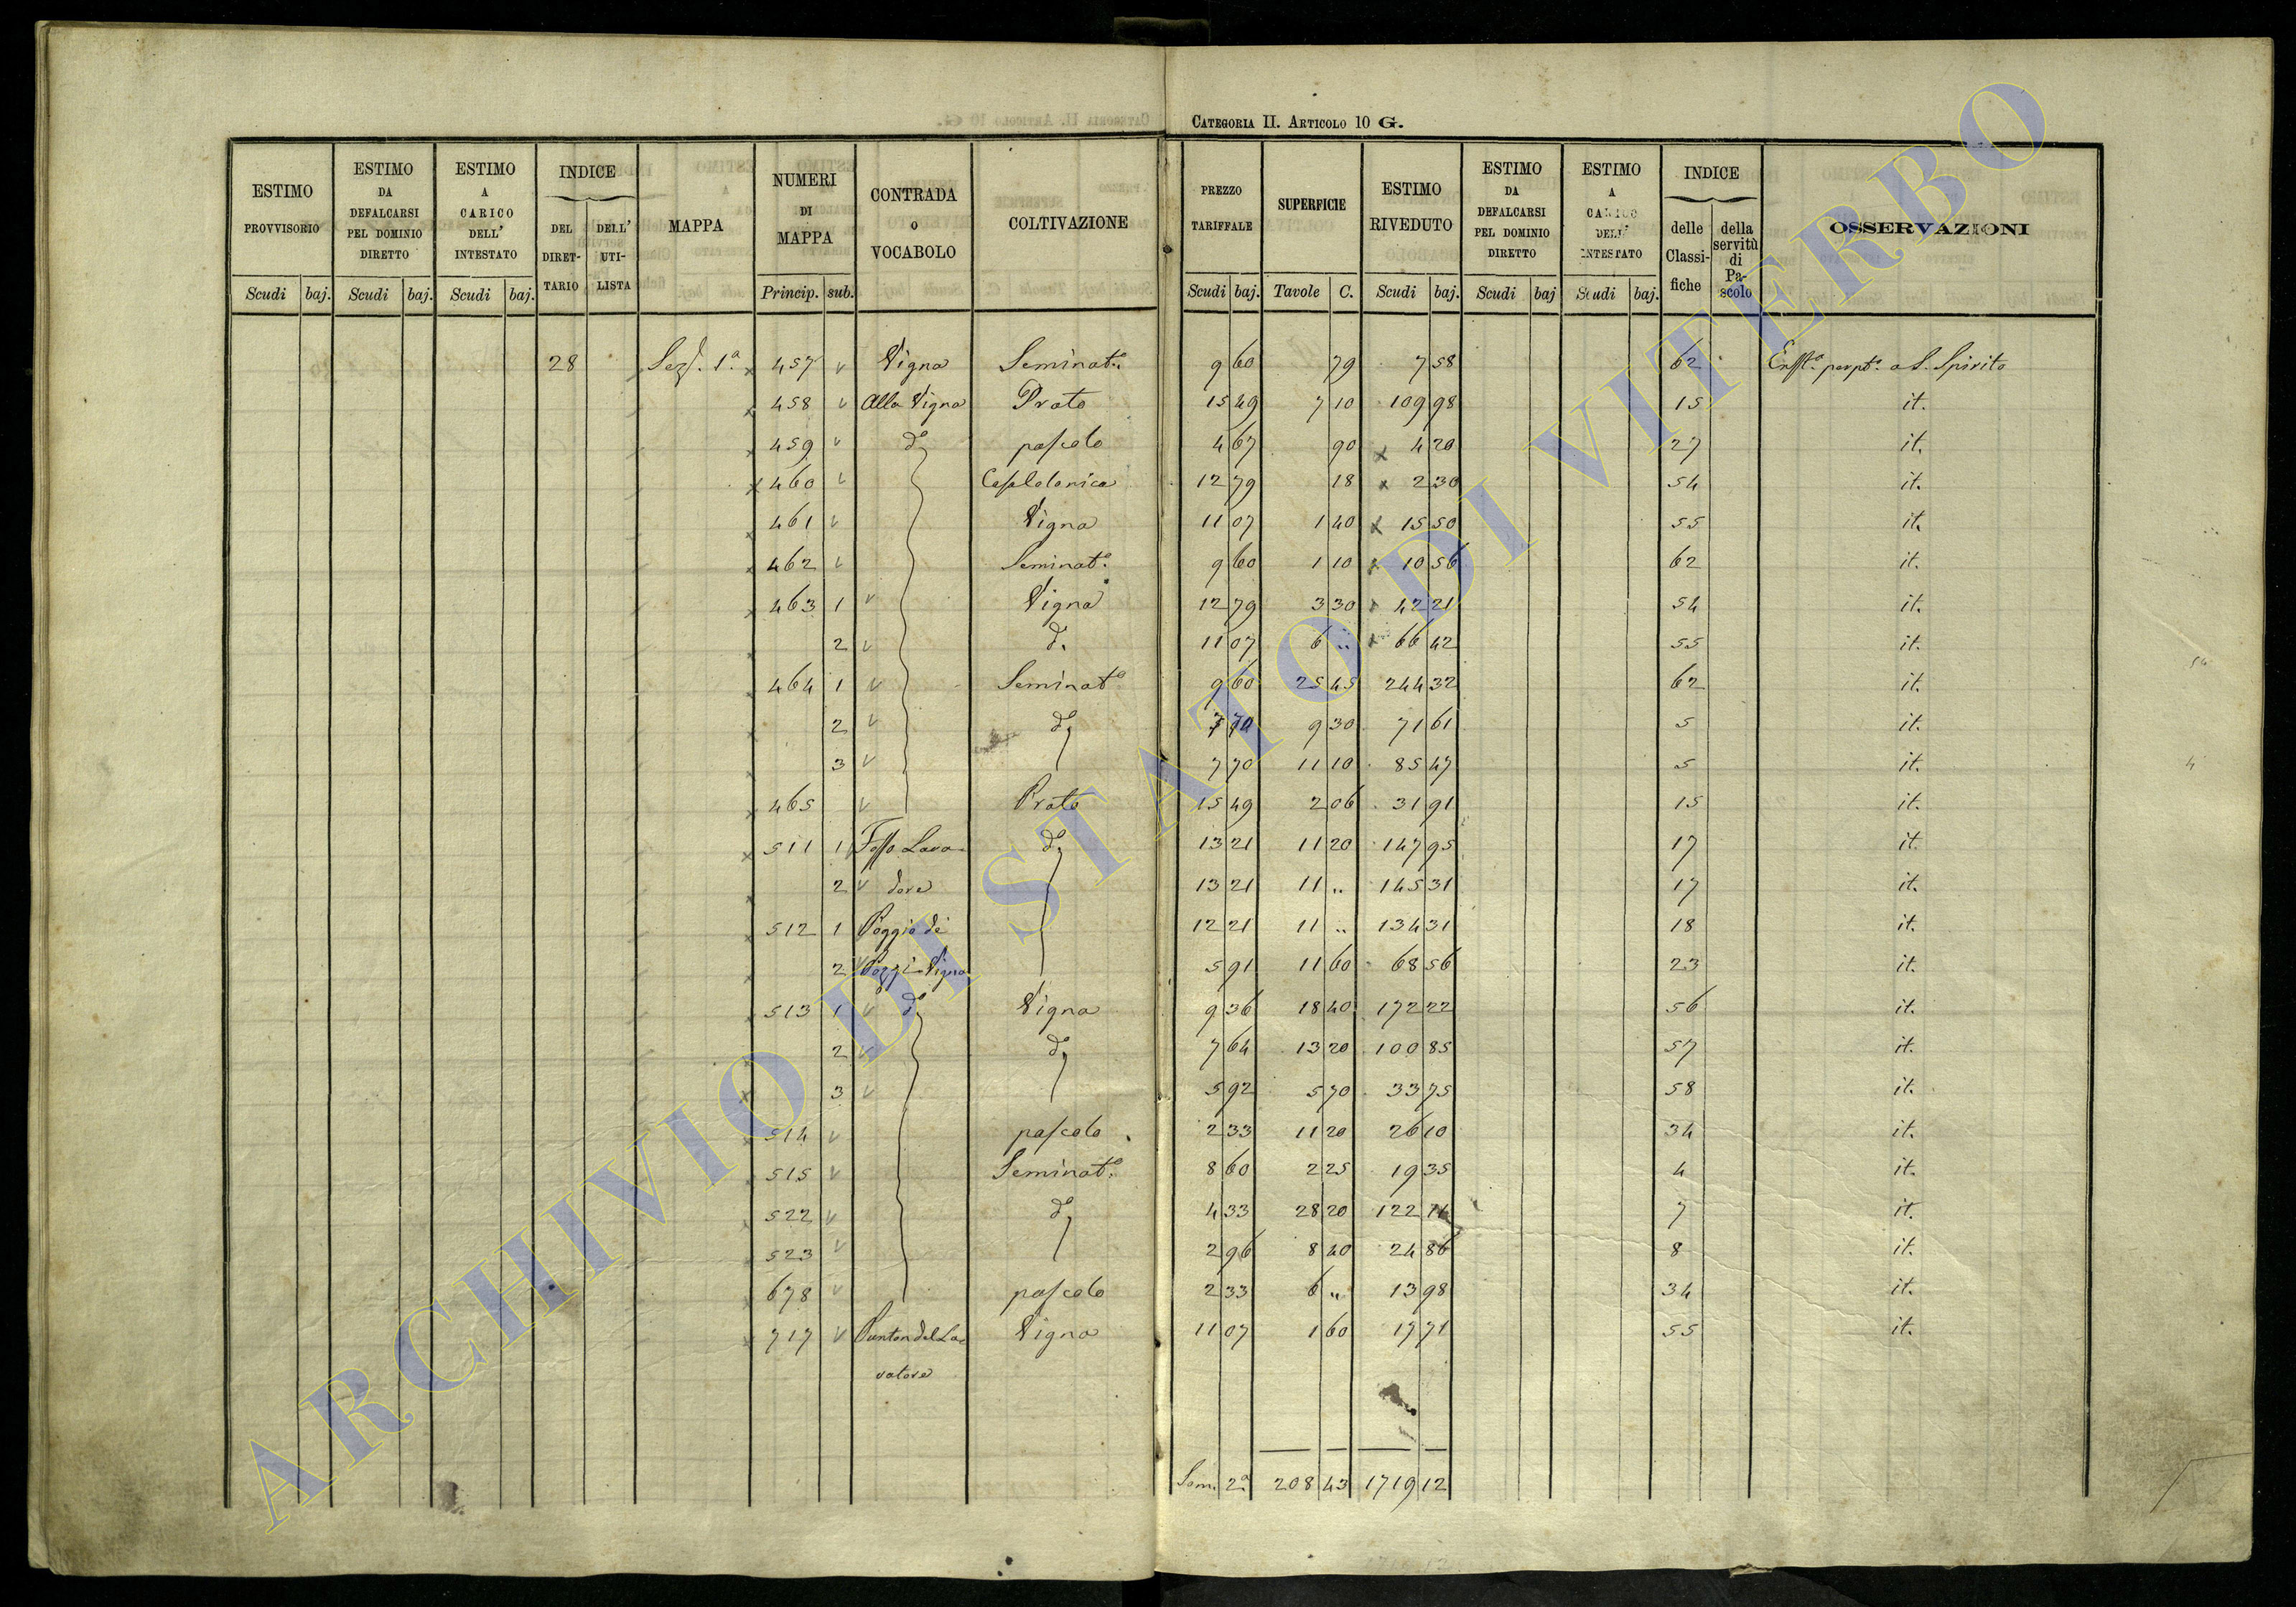 CATEGORIA II. ARTICOLO 10 G.
ESTIMO PROVVISORIO Scudi baj. | ESTIMO DA DEFALCARSI PEL DOMINIO DIRETTO Scudi baj. | ESTIMO A CARICO DELL' INTESTATO Scudi baj. | INDICE DEL DIRETTARIO | DELL' UTILISTA | MAPPA | NUMERI DI MAPPA Princip. sub. | CONTRADA O VOCABOLO | COLTIVAZIONE | PREZZO TARIFFALE Scudi baj. | SUPERFICIE Tavole C. | ESTIMO RIVEDUTO Scudi baj. | ESTIMO DA DEFALCARSI PEL DOMINIO DIRETTO Scudi baj | ESTIMO A CARICO DELL' INTESTATO Scudi baj. | INDICE delle Classifiche | della servitù di Pascolo | OSSERVAZIONI
28 Seze. 1ª 457 Vigna Seminato. 9 60 79 7 58 62 Enft.a perpt.a a S. Spirito
458 Alla Vigna Prato 15 49 7 10 109 98 15 it.
459 do pascolo 4 67 90 4 20 27 it.
460 Cas.Colonica 12 79 18 2 30 54 it.
461 Vigna 11 07 1 40 15 50 55 it.
462 Seminato. 9 60 1 10 10 56 62 it.
463 1 Vigna 12 79 3 30 42 21 54 it.
2 do. 11 07 6 .. 66 42 55 it.
464 1 Seminato 9 60 25 45 244 32 62 it.
2 do 7 70 9 30 71 61 5 it.
3 7 70 11 10 85 47 5 it.
465 Prato 15 49 2 06 31 91 15 it.
511 1 Fosso Lava- do 13 21 11 20 147 95 17 it.
2 dore 13 21 11 .. 145 31 17 it.
512 1 Poggio di 12 21 11 .. 134 31 18 it.
2 Pozzi Vigna 5 91 11 60 68 56 23 it.
513 1 do Vigna 9 36 18 40 172 22 56 it.
2 do 7 64 13 20 100 85 57 it.
3 5 92 5 70 33 75 58 it.
514 pascolo 2 33 11 20 26 10 34 it.
515 Seminato. 8 60 2 25 19 35 4 it.
522 do 4 33 28 20 122 11 7 it.
523 2 96 8 40 24 86 8 it.
678 pascolo 2 33 6 .. 13 98 34 it.
717 Punton del La- Vigna 11 07 1 60 17 71 55 it.
vatore
Som. 2ª 208 43 1719 12
ARCHIVIO DI STATO DI VITERBO